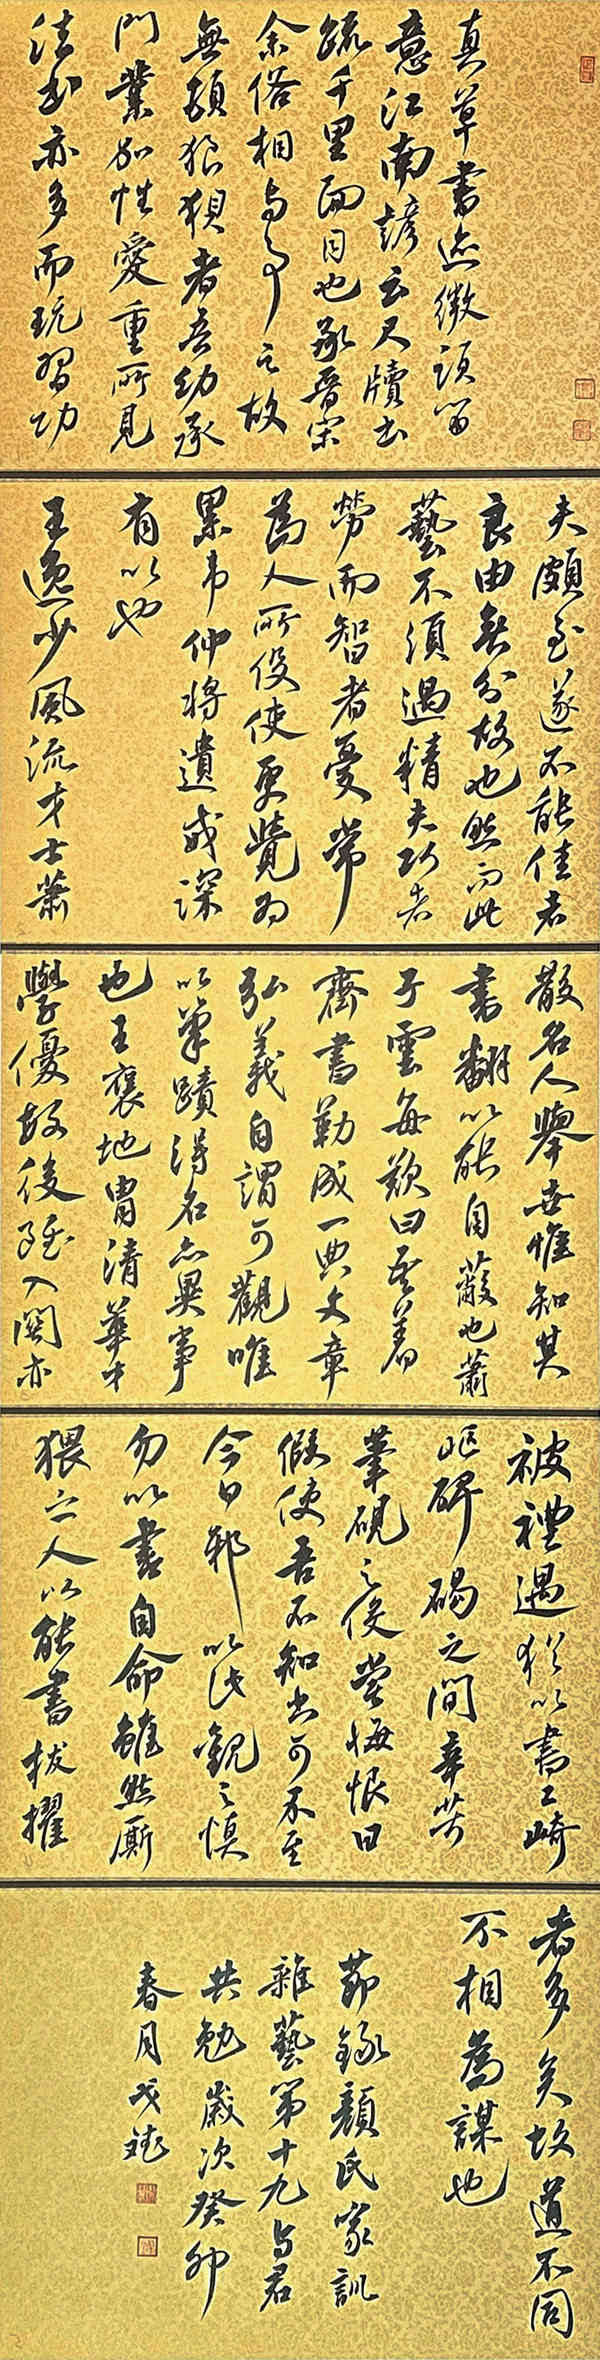 真草書迹微須留
意江南諺云尺牘書
疏千里面目也承晉宋
余俗相與事之故
無頓狼狽者吾幼承
門業加性愛重所見
法書亦多而玩習功
夫頗至遂不能佳者
良由無分故也然而此
藝不須過精夫巧者
勞而智者憂常
為人所役使更覺為
累韋仲將遺戒深
有以也
王逸少風流才士蕭
散名人舉世惟知其
書翻以能自蔽也蕭
子雲每歎曰吾著
齊書勒成一典文章
弘義自謂可觀唯
以筆蹟得名亦異事
也王褒地胄清華才
學優敏後雖入關亦
被禮遇猶以書工崎
嶇碑碣之間辛苦
筆硯之役嘗悔恨曰
假使吾不知書可不至
今日邪以此觀之慎
勿以書自命雖然廝
猥之人以能書拔擢
者多矣故道不同
不相為謀也
節錄顏氏家訓
雜藝第十九與君
共勉歲次癸卯
春月戈斌